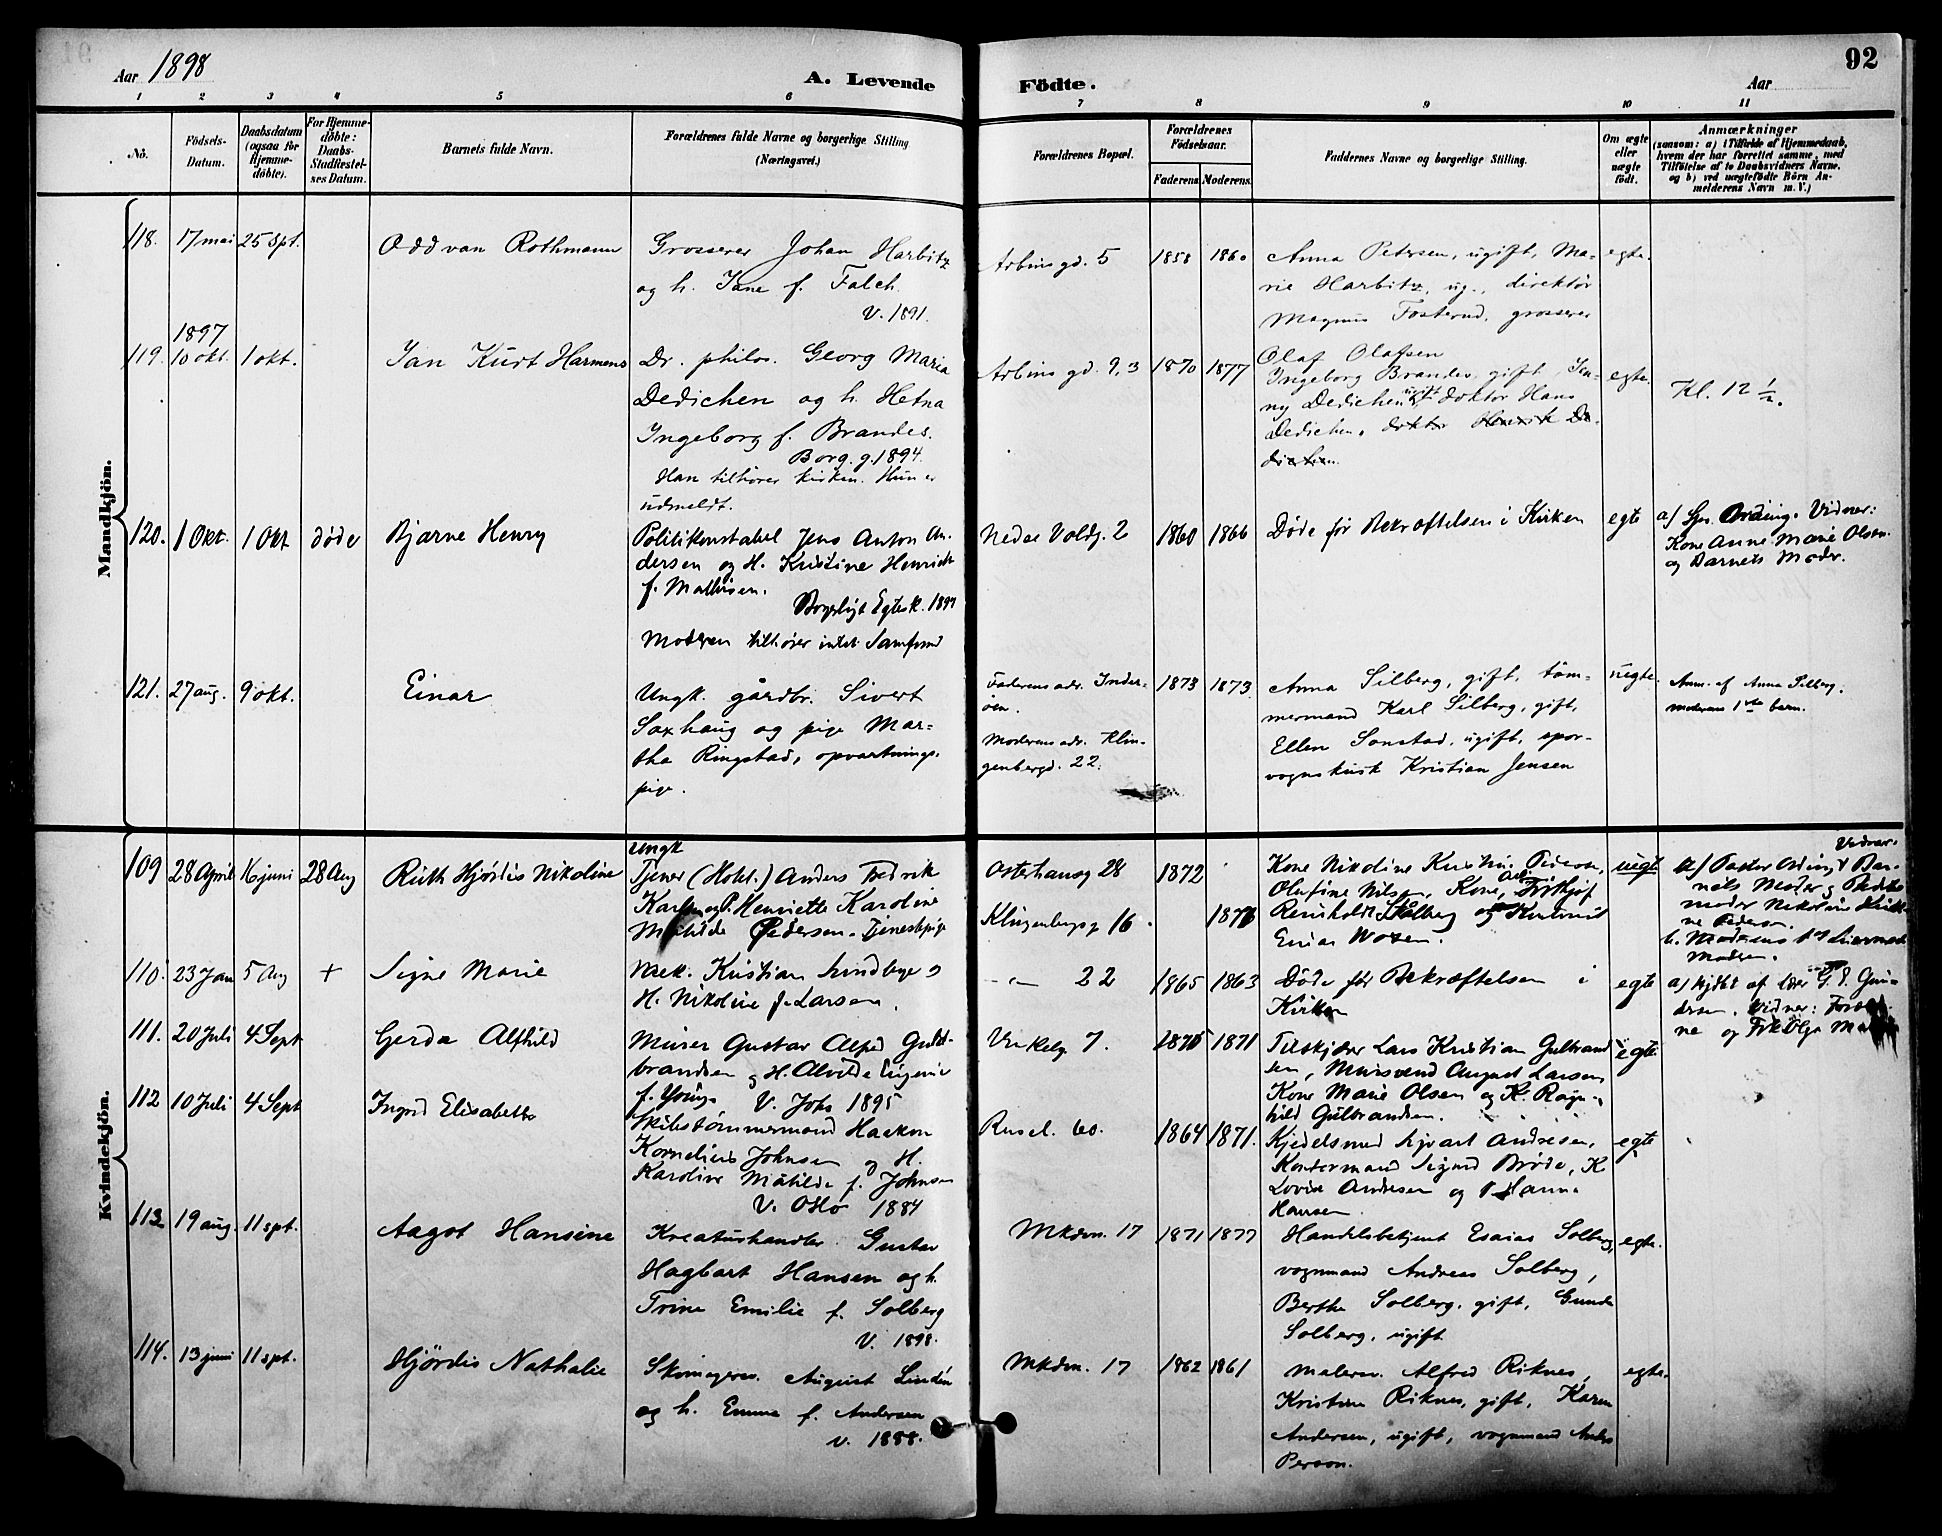 Aar 1898
A. Levende
Födte.
Aar
92
1 2 3 4 5 6 7 8 9 10 11
No.
Födsels-
Datum.
Daabsdatum
(ogsaa for
Hjemme-
döbte).
For Hjemme-
döbte:
Daabs-
Stadfæstel-
ses Datum.
Barnets fulde Navn.
Forældrenes fulde Navne og borgerlige Stilling
(Næringsvei.)
Forældrenes Bopæl.
Forældrenes
Födselsaar.
Faderens. Moderens.
Faddernes Navne og borgerlige Stilling.
Om ægte
eller
uægte
födt.
Anmærkninger
(saasom: a) i Tilfælde af Hjemmedaab,
hvem der har forrettet samme, med
Tilföielse af to Daabsvidners Navne,
og b) ved uægtefödte Börn An-
melderens Navn m. V.)
Mandkjön.
118. 17 mai 25 spt. Oddvan Rothmann
Grosserer Johan Harbitz
og h. Jane f. Falch.
V. 1891.
Arbins gd. 5 1858 1860
Anna Petersen, ugift, Ma-
rie Harbitz, ug., direktør
Magnus Fosterud, grosserer
Olaf Olafsen
egte.
1897
119. 10 okt. 1 okt. Jan Kurt Harmens
Dr. philos. Georg Maria
Dedichen og h. Hetna
Ingeborg f. Brandes.
Borg. g. 1894.
Han tilhører kirken. Hun er
udmeldt.
Arbins gd. 9, 3 1870 1877
Ingeborg Brandes, gift, Jen-
ny Dedichen, ugift, doktor Hans
Dedichen, doktor Henrik De-
dichen.
egte.
Kl. 12 1/2.
120. 1 Okt. 1 Okt døde Bjarne Henry
Politikonstabel Jens Anton An-
dersen og H. Kristine Henriette
f. Mathisen.
Borgerligt Egtesk. 1897
Moderen tilhører intet Samfund
Nedre Voldg. 2 1860 1866
Døde før Bekræftelsen i Kirken
egte
a/ Spr. Ording. Vidner:
Kone Anne Marie Olsen
og Barnets Moder.
121. 27 aug. 9 okt. Einar
Ungk. gårdbr. Sivert
Saxhaug og pige Mar-
tha Ringstad, opvartnings-
pige.
Faderens adr. Inder-
øen.
Moderens adr. Klin-
genbergd. 22.
1873 1873
Anna Silberg, gift, tøm-
mermand Karl Silberg, gift,
Ellen Sonstad, ugift, spor-
vognskusk Kristian Jensen
uegte.
Anm. af Anna Silberg.
moderens 1ste barn.
Kvindekjön.
109 28 April 16 juni 28 Aug Ruth Hjørdis Nikoline
Ungk
Tjener (Hotel.) Anders Fredrik
Karlsen og P. Henriette Karoline
Matilde Pedersen. Tjenestepige
Osterhausg 28 1872
Klingenbergg 16. 1876
Kone Nikoline Kristine Pederson,
Olufine Nilsen, Kone, Arb. Fritjof
Reinholdt Stolberg og
uegt
Vidner:
a/ Pastor Ording Bar-
nets Moder og Bedste-
moder Nikoline Kristi-
ne Pederson.
110. 23 Jan 5 Aug + Signe Marie
Mek. Kristian Lindbye og
H. Nikoline f. Larsen.
-"- 22 1865 1863
Døde før Bekræftelsen i
Kirken
egte
111. 20 Juli 4 Sept Gerda Alfhild
Murer Gustav Alfred Guld-
brandsen og H. Alvilde Eugenie
f. Youngs V. Johs 1895
Vinkelg 7. 1875 1871
Tilskjærer Lars Kristian Gulbrand
sen, Mursvend August Larsen
Kone Marie Olsen og K. Ragn-
hild Gulbrandsen.
egte
112 10 Juli 4 Sept Ingrid Elisabeth
Skibstømmermand Haakon
Kornelius Johnsen og H.
Karoline Matilde f. Johnsen
V. Oslo 1884
Rusel. 60. 1864 1871.
Kjedelsmed Sjvart Andresen,
Kontormand Sigurd Brøde, K
Lovise Andresen og P Hanna
Hansen.
egte
113 19 aug. 11 spt. Aagot Hansine
Kreaturhandler Gustav
Hagbart Hansen og h.
Trine Emilie f. Solberg
V. 1898.
Mkdvn. 17 1871 1877
Handelsbetjent Esaias Solberg,
vognmand Andreas Solberg,
Berthe Solberg, gift, Gunda
Solberg, ugift
egte.
114. 13 juni 11 spt. Hjördis Nathalie
Skomagersv. August Lindén
og h. Emma f. Andersen
v. 1888.
Mkdvn. 17 1862 1861
Malersv. Alfred Riknes,
Kristine Riknes, gift, Karen
Andersen, ugift, vognmand Anders
Person.
egte.